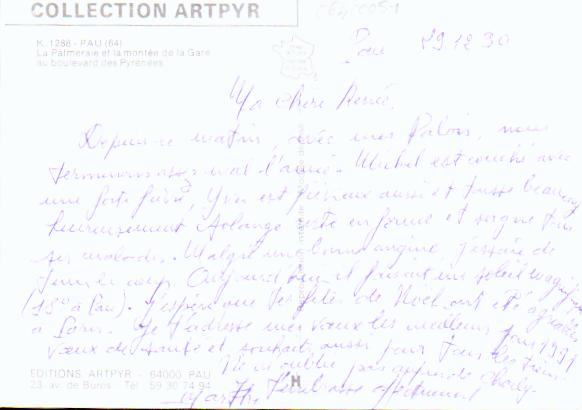 COLLECTION ARTPYR
K. 1288 - PAU (64)
La Palmeraie et la montée de la Gare
au boulevard des Pyrénées
Pau 29.12.90
Ma chère Renée,
Depuis ce matin, avec mes Palois, nous
terminons assez mal l'année. Michel est couché avec
une forte fièvre, Yvon est fiévreux aussi et tousse beaucoup
heureusement Solange reste en forme et soigne tous
ses malades. Malgré une bonne angine, j'essaie de
tenir le coup. Aujourd'hui il faisait un soleil magnifique
(15° à Pau). J'espère que les fêtes de Noël ont été agréables
à Paris. Je t'adresse mes vœux les meilleurs pour 1991
vœux de santé et souhaits aussi pour tous les tiens.
Ne m'oublie pas auprès de
Marthe t'embrasse affectueusement
EDITIONS ARTPYR - 64000 PAU
23, av. de Buros - Tél 59 30 74 94